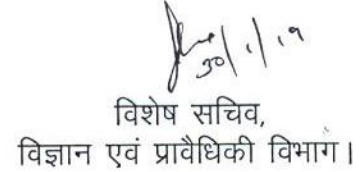 30/1/19
विशेष सचिव,
विज्ञान एवं प्रावैधिकी विभाग।